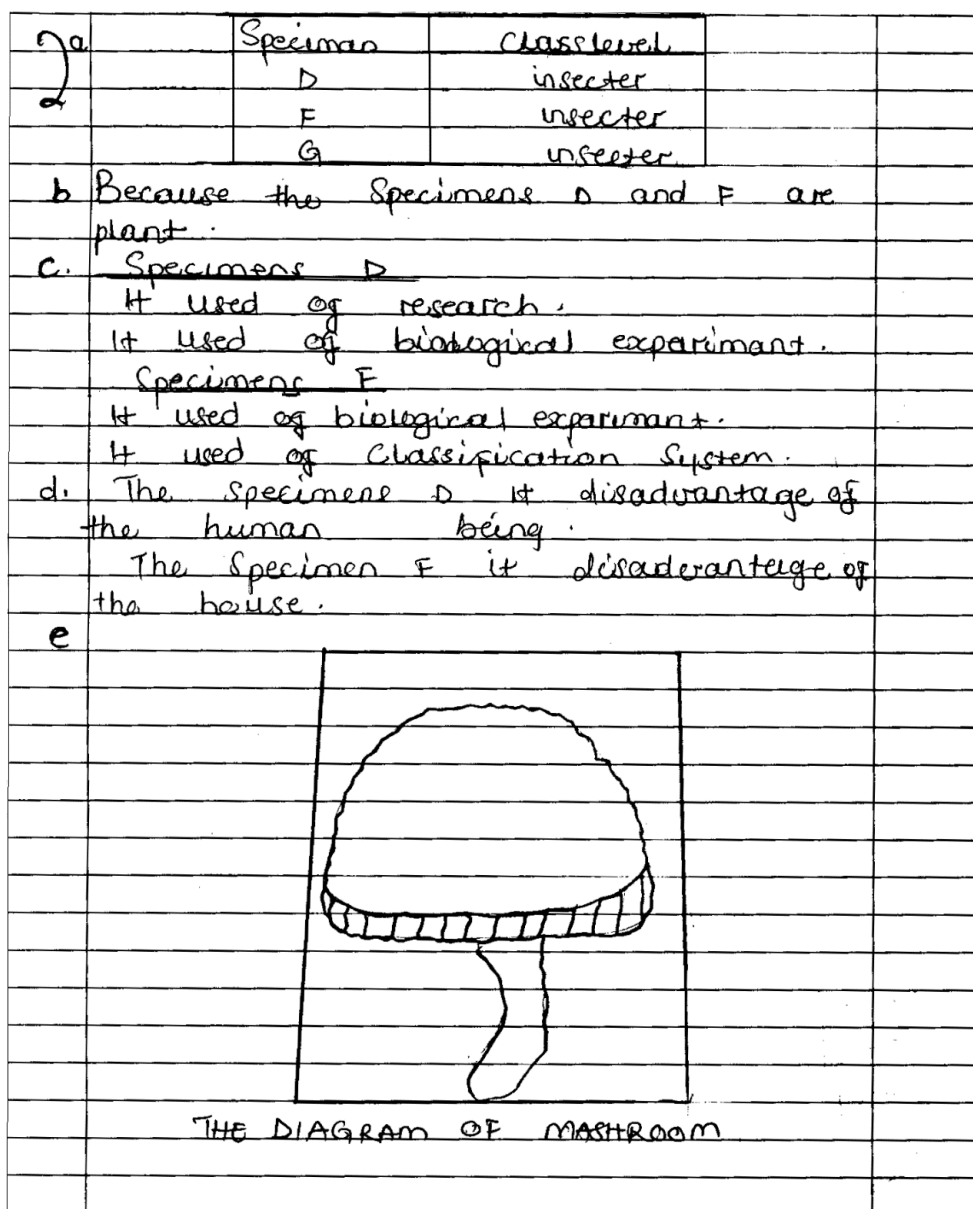 2a Speciman Class level
D insecter
F insecter
G insecter
b Because the Specimens D and F are
plant.
c. Specimens D
It used of research.
It used of biological experimant.
Specimens F
It used of biological experimant.
It used of Classification System.
d. The Specimens D it disadvantage of
the human being.
The Specimen F it disaderanteige of
the house.
e
THE DIAGRAM OF MASHROOM